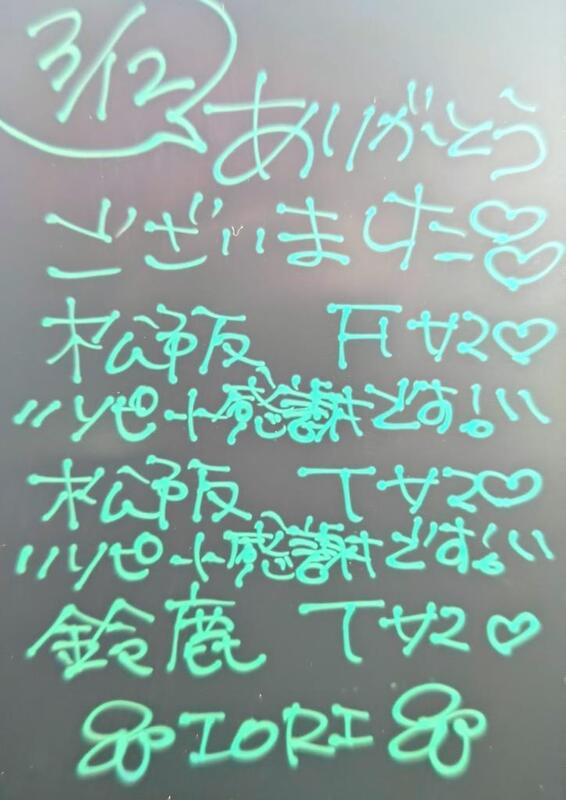 3/12
ありがとう
ございました♡♡
松阪 Hサマ♡
〃リピート感謝です!〃
松阪 Tサマ♡
〃リピート感謝です!〃
鈴鹿 Tサマ♡
IORI